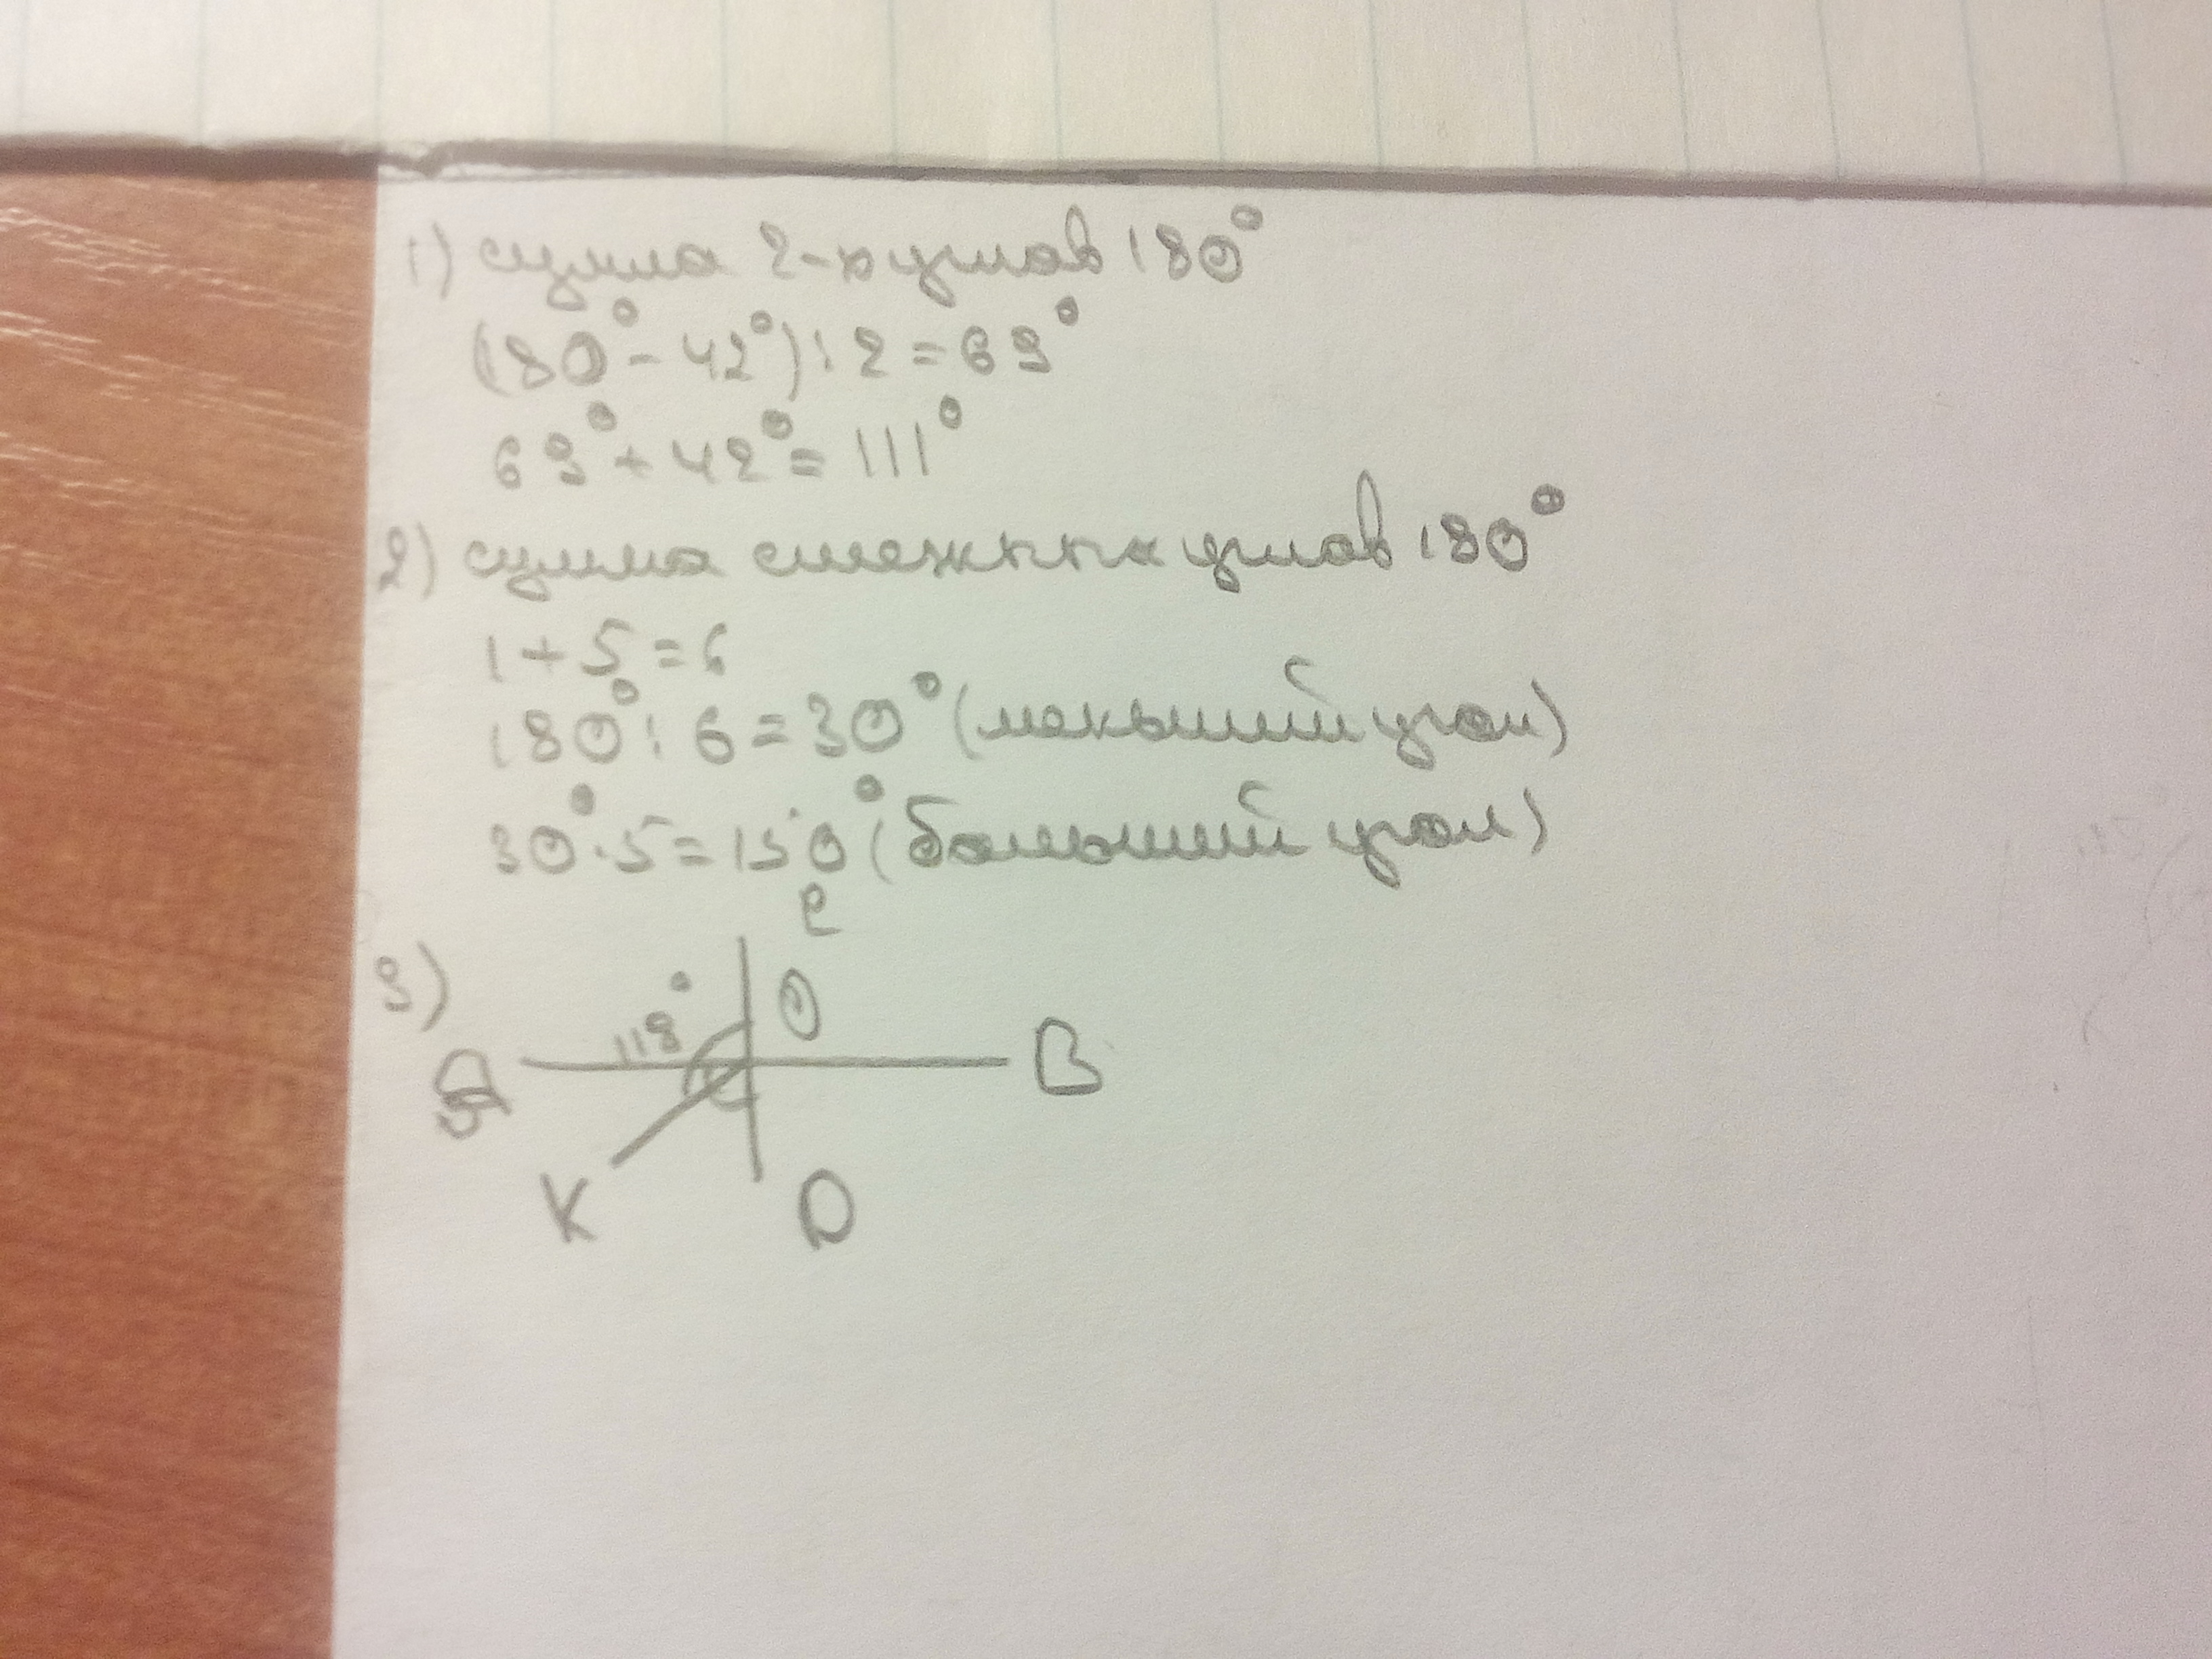 1) сумма 2-х углов 180°
(180° - 42°) : 2 = 69°
69° + 42° = 111°
2) сумма смежных углов 180°
1 + 5 = 6
180° : 6 = 30° (меньший угол)
30° · 5 = 150° (больший угол)
3)
C
118°
O
A
B
K
D